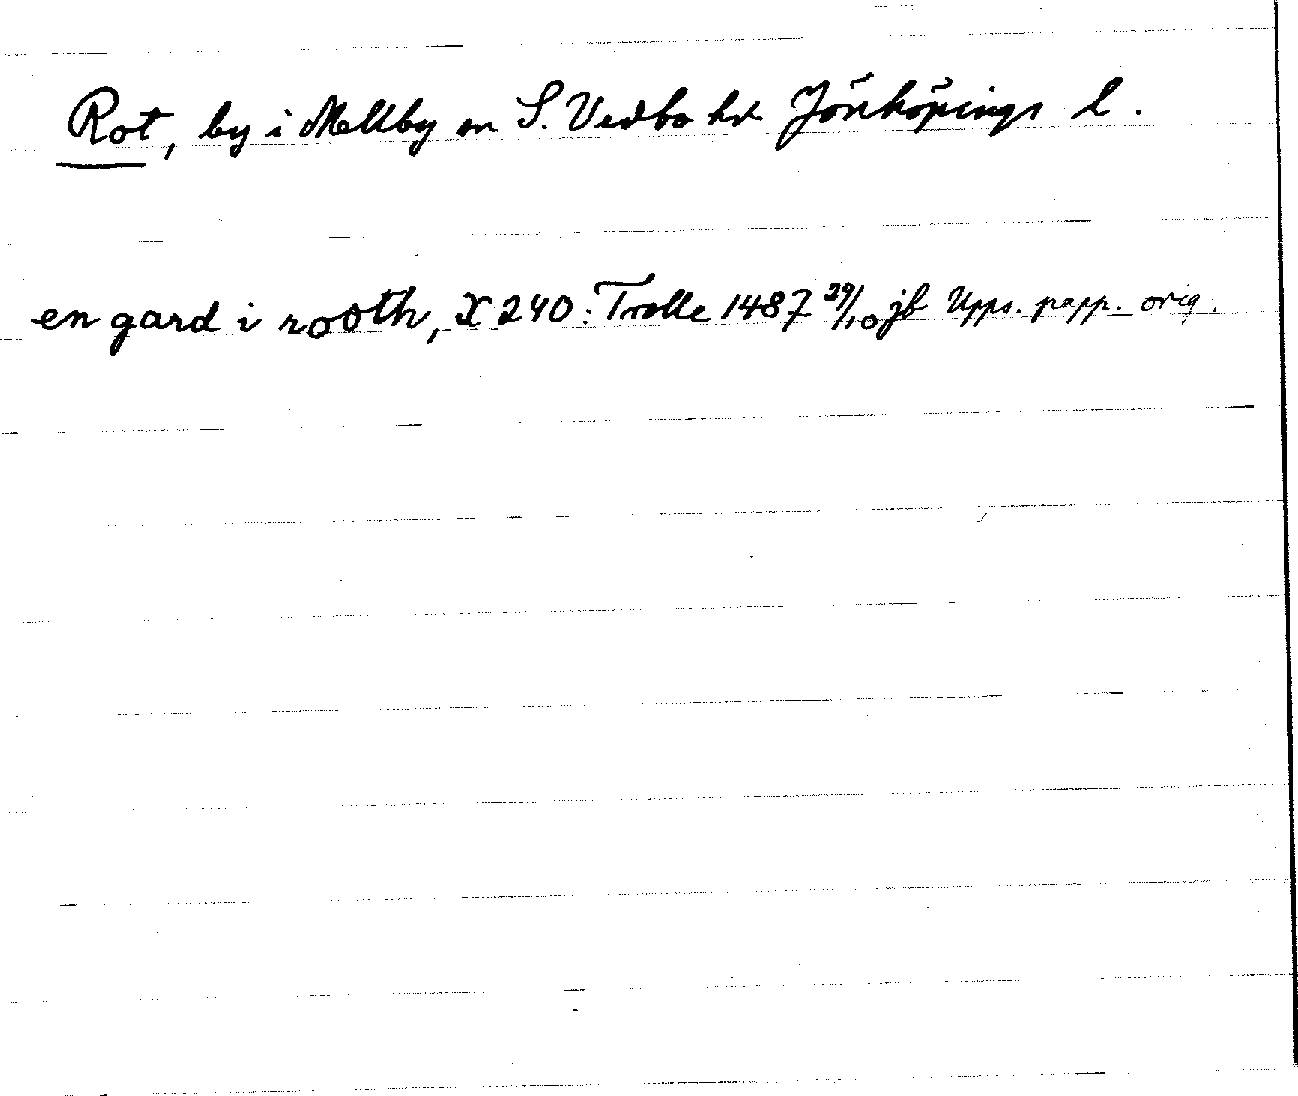 Rot, by i Mellby sn S. Vedbo hd Jönköpings l.
en gard i rooth, X 240: Trolle 1487 29/10 jb Upps. papp. orig.